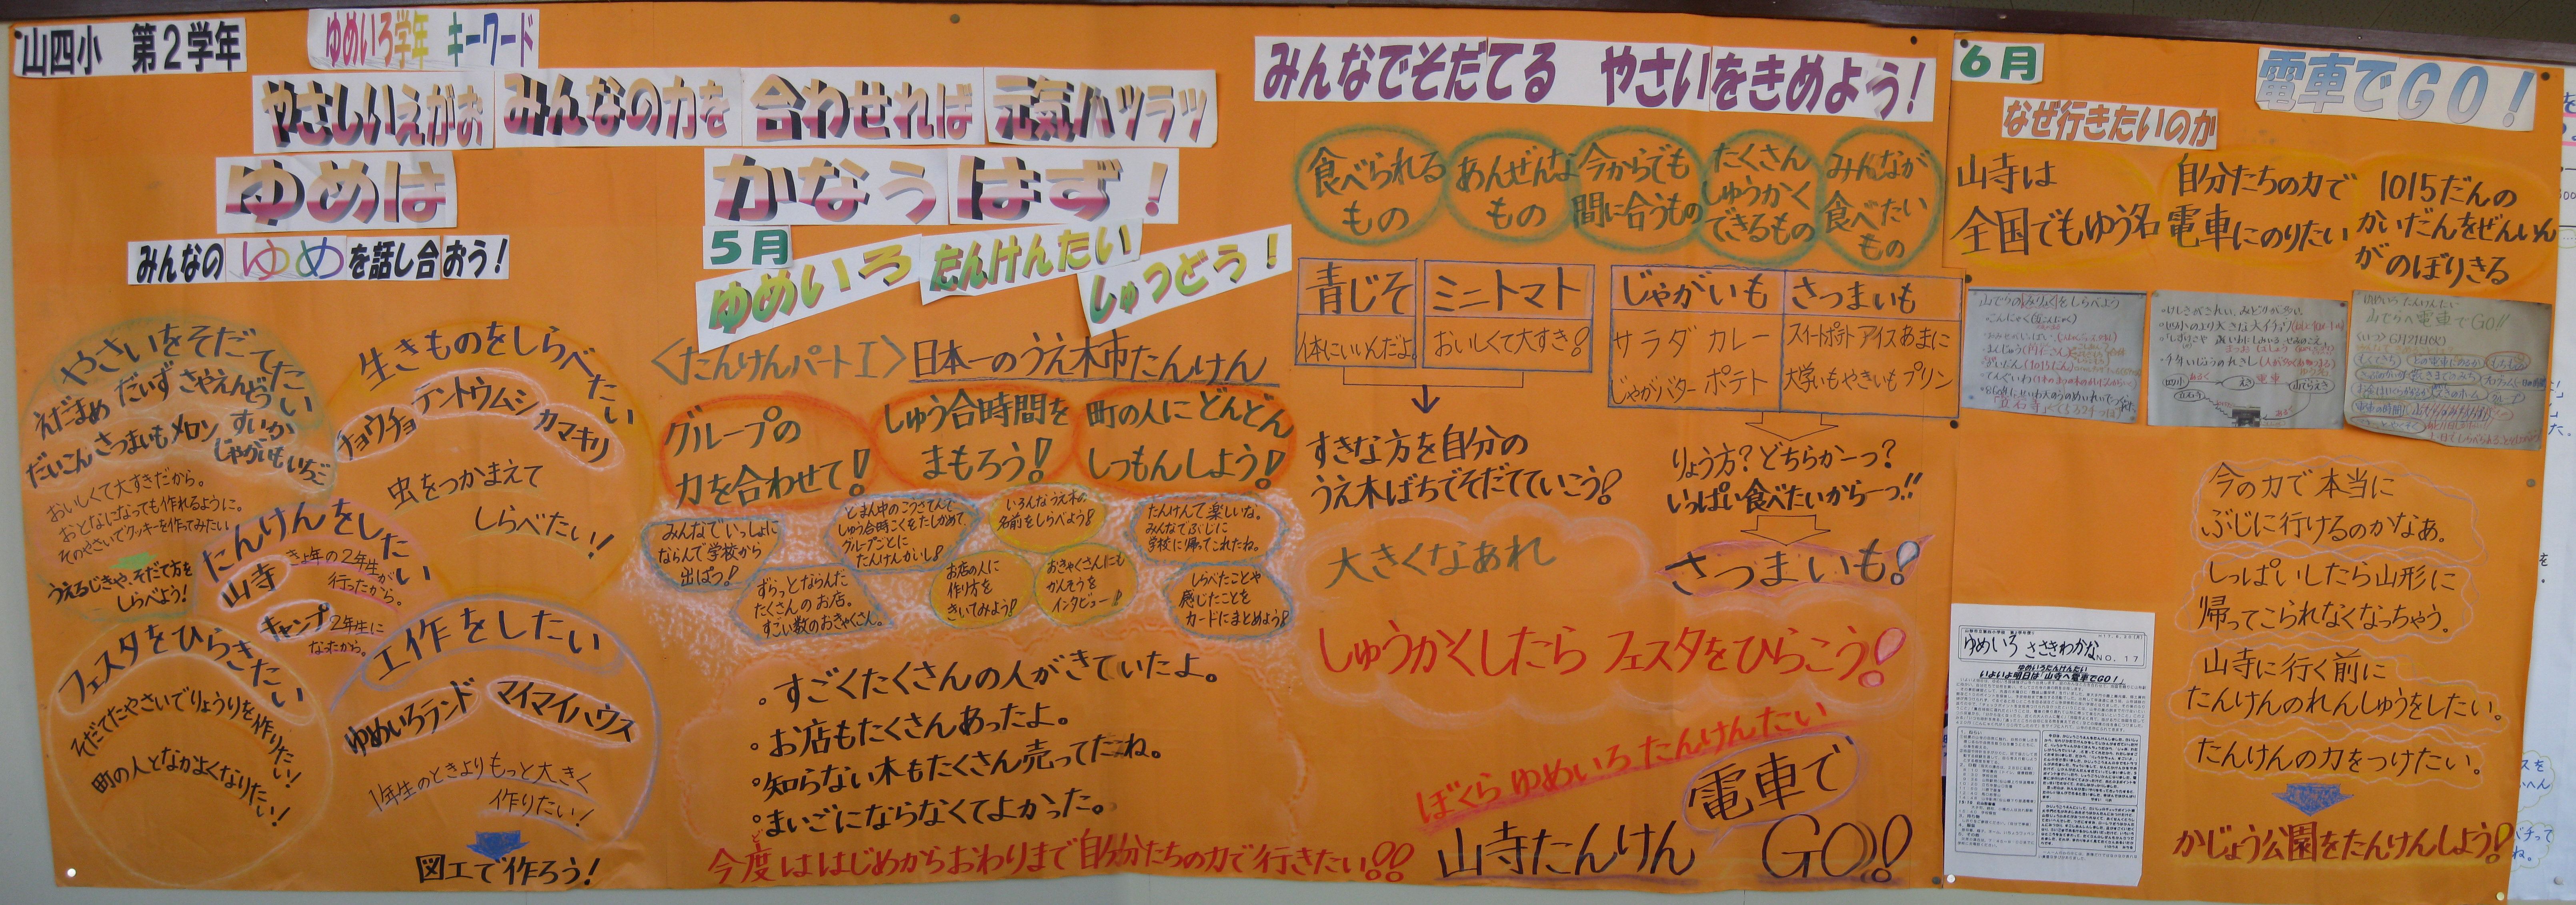 山四小 第2学年
ゆめいろ学年 キーワード
やさしいえがお みんなの力を 合わせれば 元気ハツラツ
ゆめは かなうはず!
みんなの ゆめ を話し合おう!
やさいをそだてたい
えだまめ だいず さやえんどう
だいこん さつまいも メロン すいか
じゃがいも いちご
おいしくて大すきだから。
おとなになっても作れるように。
そのやさいでクッキーを作ってみたい
うえるじきや、そだて方を
しらべよう!
生きものをしらべたい
チョウチョ テントウムシ カマキリ
虫をつかまえて
しらべたい!
たんけんをしたい
山寺
きょ年の2年生
行ったから。
キャンプ
2年生に
なったから。
フェスタをひらきたい
そだてたやさいでりょうりを作りたい!
町の人となかよくなりたい!
工作をしたい
ゆめいろランド マイマイハウス
1年生のときよりもっと大きく
作りたい!
図工で作ろう!
5月
ゆめいろ たんけんたい しゅつどう!
〈たんけんパートI〉日本一のうえ木市たんけん
グループの
力を合わせて!
しゅう合時間を
まもろう!
町の人にどんどん
しつもんしよう!
みんなでいっしょに
ならんで学校から
出ぱつ!
ずらっとならんた
たくさんのお店。
すごい数のおきゃくさん。
とまん中のこうさてんで
しゅう合時こくをたしかめて、
グループごとに
たんけんかいし!
いろんなうえ木の
名前をしらべよう!
お店の人に
作り方を
きいてみよう!
おきゃくさんにも
かんそうを
インタビュー!
たんけんて楽しいな。
みんなでぶじに
学校に帰ってこれたね。
しらべたことや
感じたことを
カードにまとめよう!
。すごくたくさんの人がきていたよ。
。お店もたくさんあったよ。
。知らない木もたくさん売ってたね。
。まいごにならなくてよかった。
今度ははじめからおわりまで自分たちの力で行きたい!!
みんなでそだてる やさいをきめよう!
食べられる
もの
あんぜんな
もの
今からでも
間に合うもの
たくさん
しゅうかく
できるもの
みんなが
食べたい
もの
青じそ
体にいいんだよ。
ミニトマト
おいしくて大すき!
じゃがいも
サラダ カレー
じゃがバター ポテト
さつまいも
スイートポテト アイス あまに
大学いも やきいも プリン
すきな方を自分の
うえ木ばちでそだてていこう!
りょう方?どちらか一つ?
いっぱい食べたいから一つ!!
さつまいも!
大きくなあれ
しゅうかくしたら フェスタをひらこう!
ぼくら ゆめいろ たんけんたい
山寺たんけん 電車で GO!!
6月
電車でGO!
なぜ行きたいのか
山寺は
全国でもゆう名
自分たちの力で
電車にのりたい
1015だんの
かいだんをぜんいん
が のぼりきる
今の力で本当に
ぶじに行けるのかなあ。
しっぱいしたら山形に
帰ってこられなくなっちゃう。
山寺に行く前に
たんけんのれんしゅうをしたい。
たんけんの力をつけたい。
かじょう公園をたんけんしよう!
ゆめいろ ささきわかな NO.17
ゆめいろたんけんたい
いよいよ明日は「山寺へ電車でGO!」